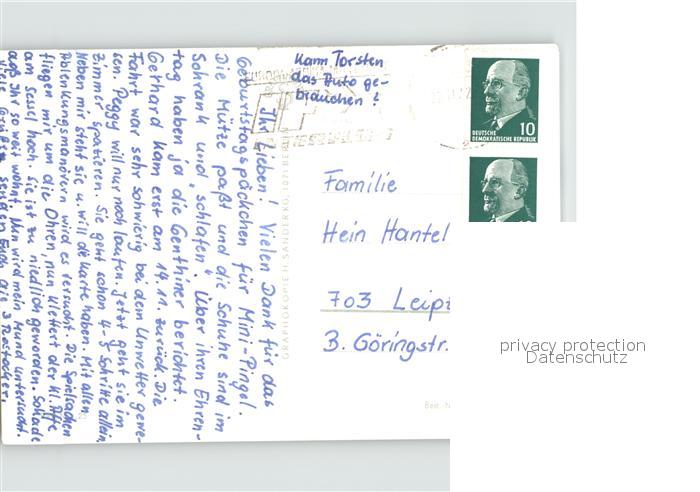 Kann Torsten
das Auto ge-
brauchen?
Ihr Lieben! Vielen Dank für das
Geburtstagspäckchen für Mini-Pingel.
Die Mütze paßt und die Schuhe sind im
Schrank und "schlafen". Über ihren Ehren-
tag haben ja die Genthiner berichtet.
Gerhard kam erst am 19.11. zurück. Die
Fahrt war sehr schwierig bei dem Unwetter gewe-
sen. Peggy will nur noch laufen. Jetzt geht sie im
Zimmer spazieren. Sie geht schon 4-5 Schritte allein.
Neben mir steht sie u. will de Karte haben. Mit allen
Ablenkungsmanövern wird es versucht. Die Spielsachen
fliegen mir um die Ohren, nun klettert der kl. Affe
am Sessel hoch. Sie ist zu niedlich geworden. Schade
daß Ihr so weit wohnt. Nun wird mein Mund untersucht.
Viele Grüße senden Euch die 3 Rostocker.
GRAPHOKOPIE H. SANDER KG, 1071 BERLIN
DEUTSCHE
DEMOKRATISCHE REPUBLIK
10
Familie
Hein Hantel
703 Leipz
B. Göringstr.
Best.-N
privacy protection
Datenschutz